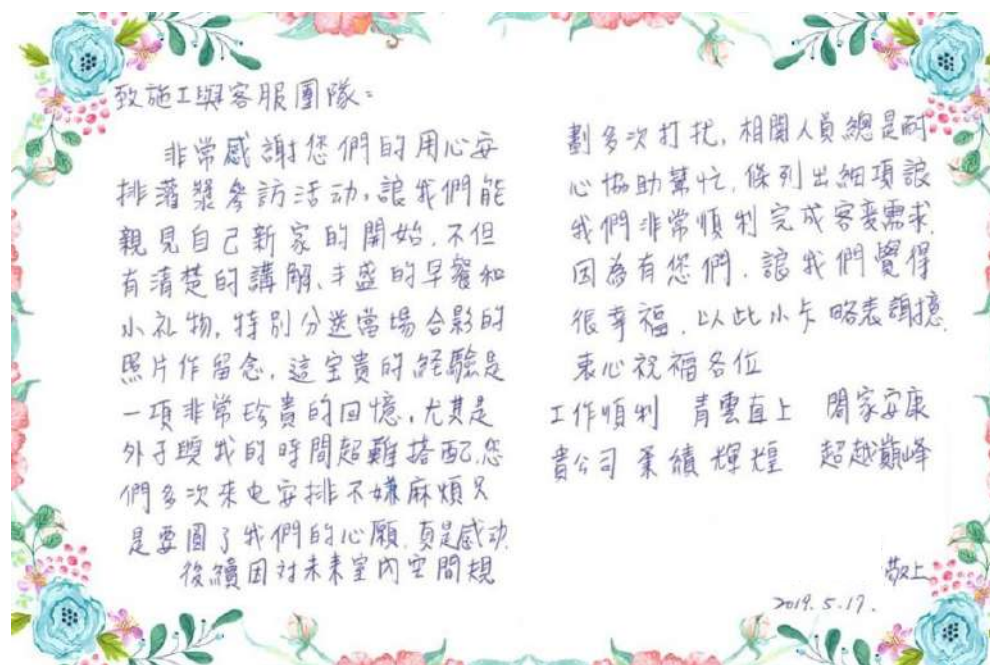 致施工與客服團隊：
非常感謝您們的用心安
排灌漿參訪活动，讓我們能
親見自己新家的開始，不但
有清楚的講解、丰盛的早餐和
小礼物，特別分送當場合影的
照片作留念，這宝貴的經驗是
一項非常珍貴的回憶，尤其是
外子與我的時間超難搭配，您
們多次來电安排不嫌麻煩只
是要圓了我們的心願，真是感动.
後續因对未來室內空間規
劃多次打扰，相關人員總是耐
心協助幫忙，條列出細項讓
我們非常順利完成客變需求.
因為有您們，讓我們覺得
很幸福，以此小卡略表謝意.
衷心祝福各位
工作順利 青雲直上 闔家安康
貴公司 業績輝煌 超越巔峰
敬上
2019.5.17.